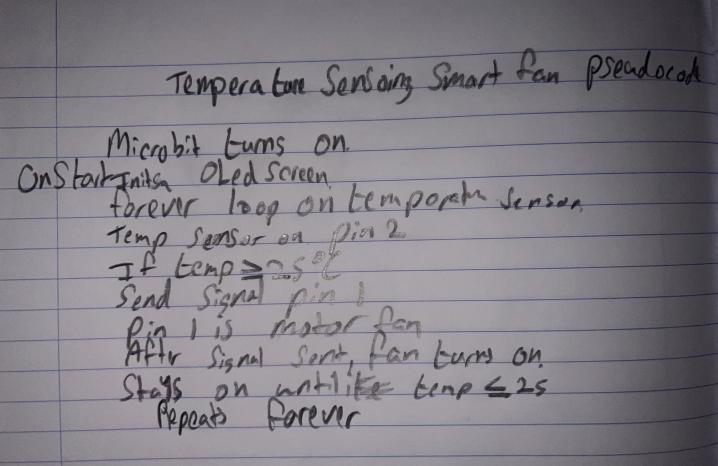 Temperature Sensoing Smart fan pseudocod
Microbit turns on.
OnStart Initsa OLed Screen
forever loop on temporatr sensor.
Temp sensor on Pin 2
If temp ≥ 25°C
Send signal pin 1
Pin 1 is motor fan
Aftr signal sent, fan turns on.
Stays on until temp ≤ 25
Repeats forever